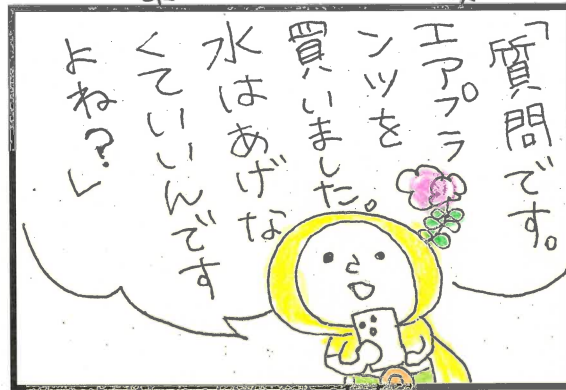 「質問です。
エアプラ
ンツを
買いました。
水はあげな
くていいんです
よね？」